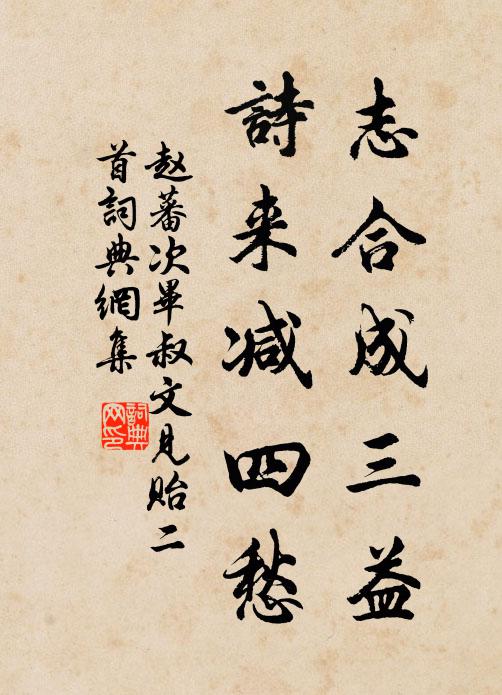 志合成三益
詩来减四愁
赵蕃次畢叔文見贻二
首詞典網集
詞典
网印